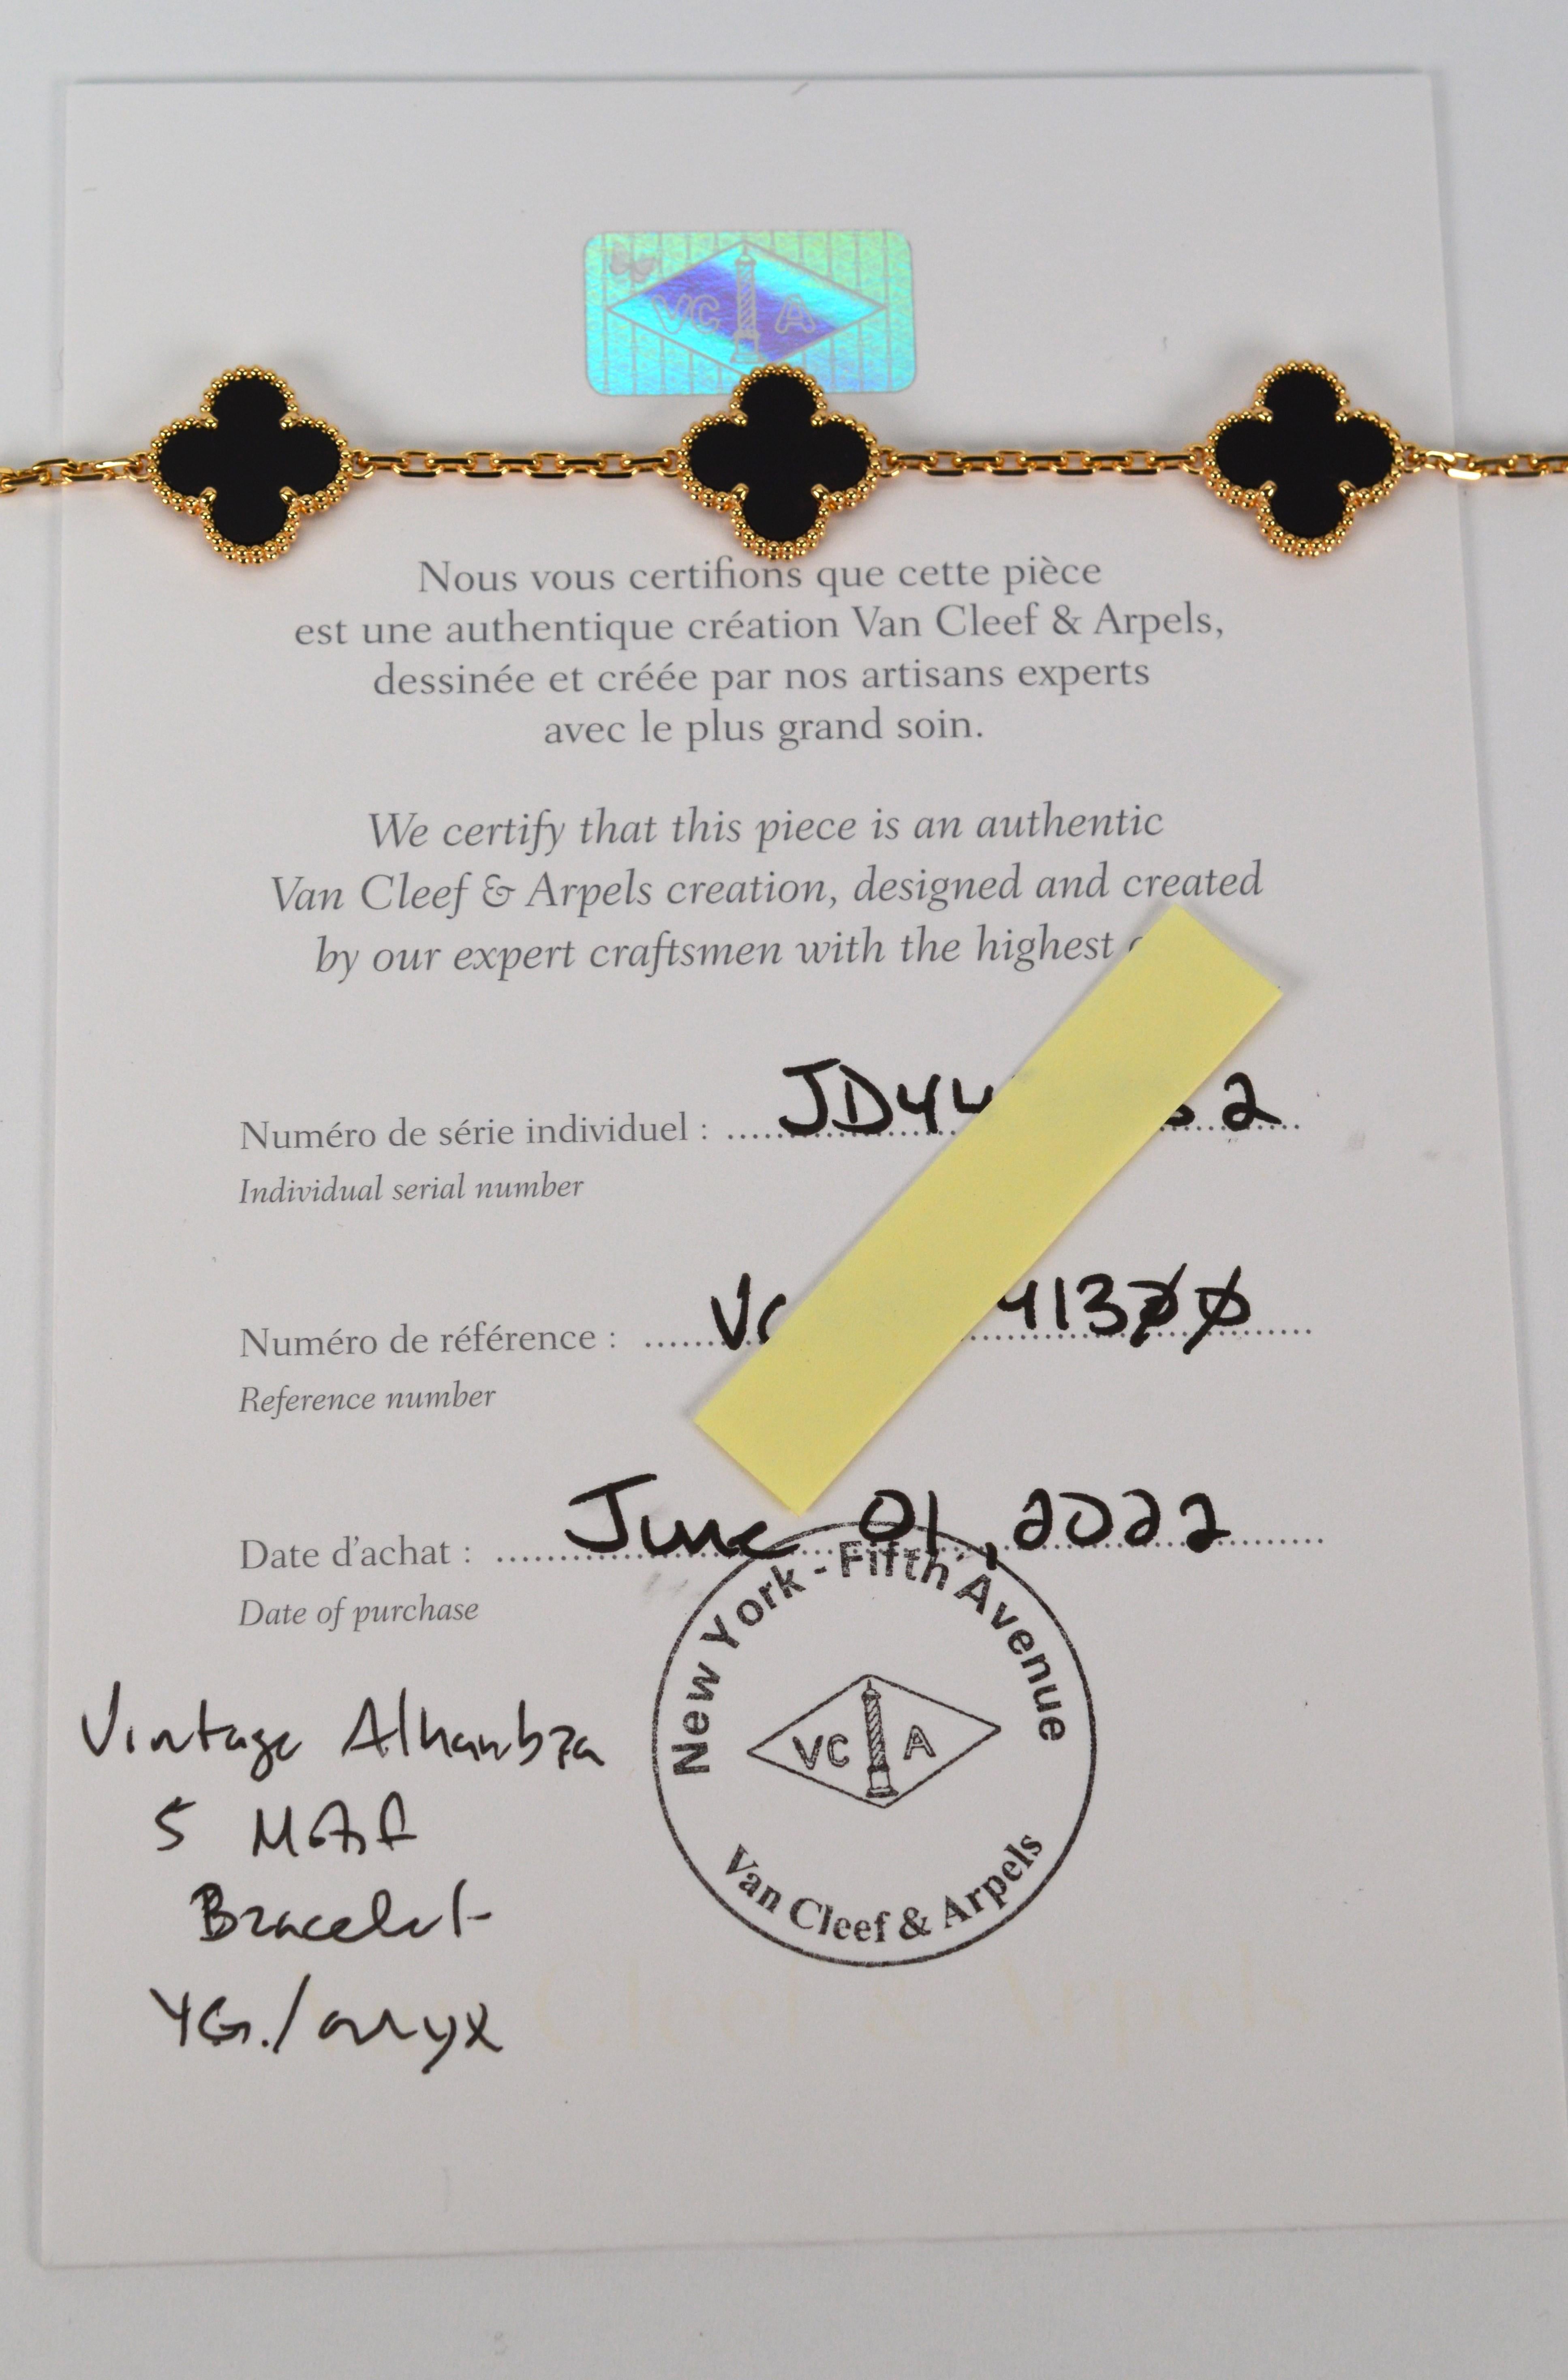 VC A
Nous vous certifions que cette pièce
est une authentique création Van Cleef & Arpels,
dessinée et créée par nos artisans experts
avec le plus grand soin.
We certify that this piece is an authentic
Van Cleef & Arpels creation, designed and created
by our expert craftsmen with the highest
Numéro de série individuel : JD44 2
Individual serial number
Numéro de référence : VC 41300
Reference number
Date d'achat : June 01, 2022
Date of purchase
New York - Fifth Avenue
VC A
Van Cleef & Arpels
Vintage Alhambra
5 Motif
Bracelet
YG./onyx